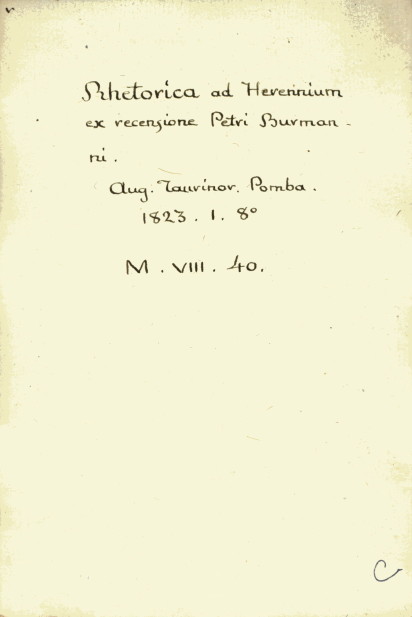 Rhetorica ad Herennium
ex recensione Petri Burman-
ni.
Aug. Taurinor. Pomba.
1823. 1. 8°
M. VIII. 40.
C